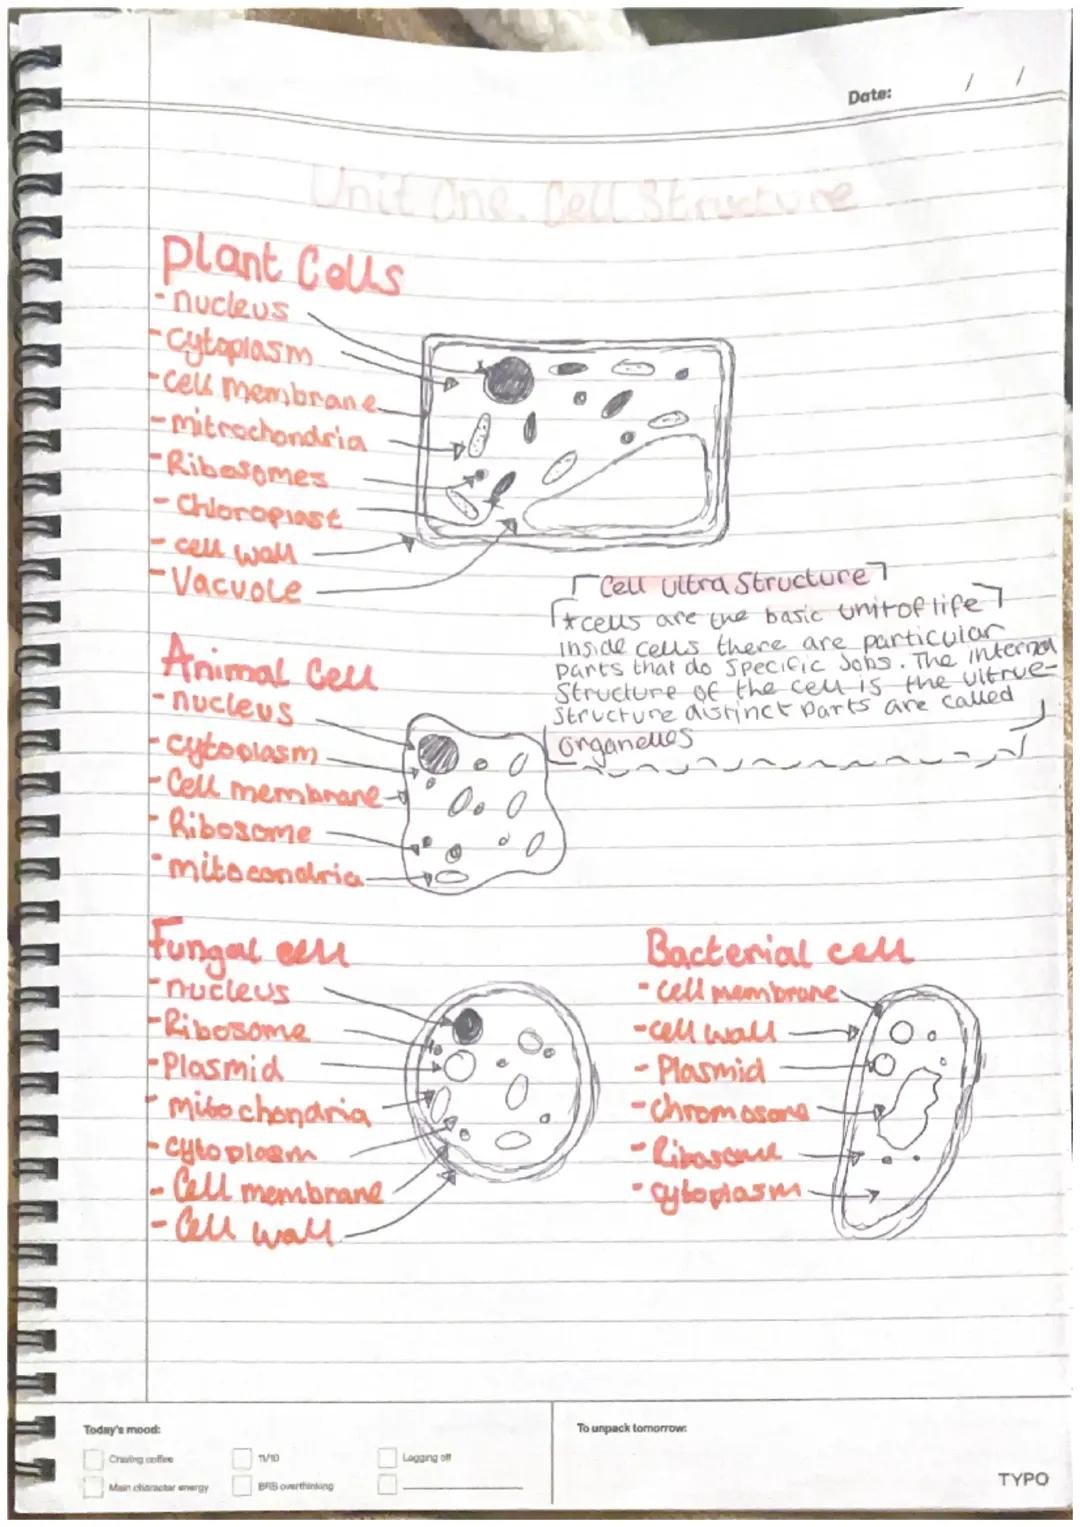 Date: / /
Unit One. Cell Structure
Plant Cells
- nucleus
- Cytoplasm
- Cell membrane
- mitrochondria
- Ribosomes
- Chloroplast
- cell wall
- Vacuole
Cell Ultra Structure
* cells are the basic unit of life
inside cells there are particular
parts that do specific Jobs. The internal
Structure of the cell is the ultrue-
Structure distinct parts are called
organelles
Animal Cell
- nucleus
- cytoplasm
- Cell membrane
- Ribosome
- mitocondria
Fungal cell
- nucleus
- Ribosome
- Plasmid
- mitochondria
- cytoplasm
- Cell membrane
- Cell wall
Bacterial cell
- cell membrane
- cell wall
- Plasmid
- Chromosome
- Ribosome
- cytoplasm
Today's mood:
Craving coffee
11/10
Logging off
Main character energy
BRB overthinking
To unpack tomorrow:
TYPO